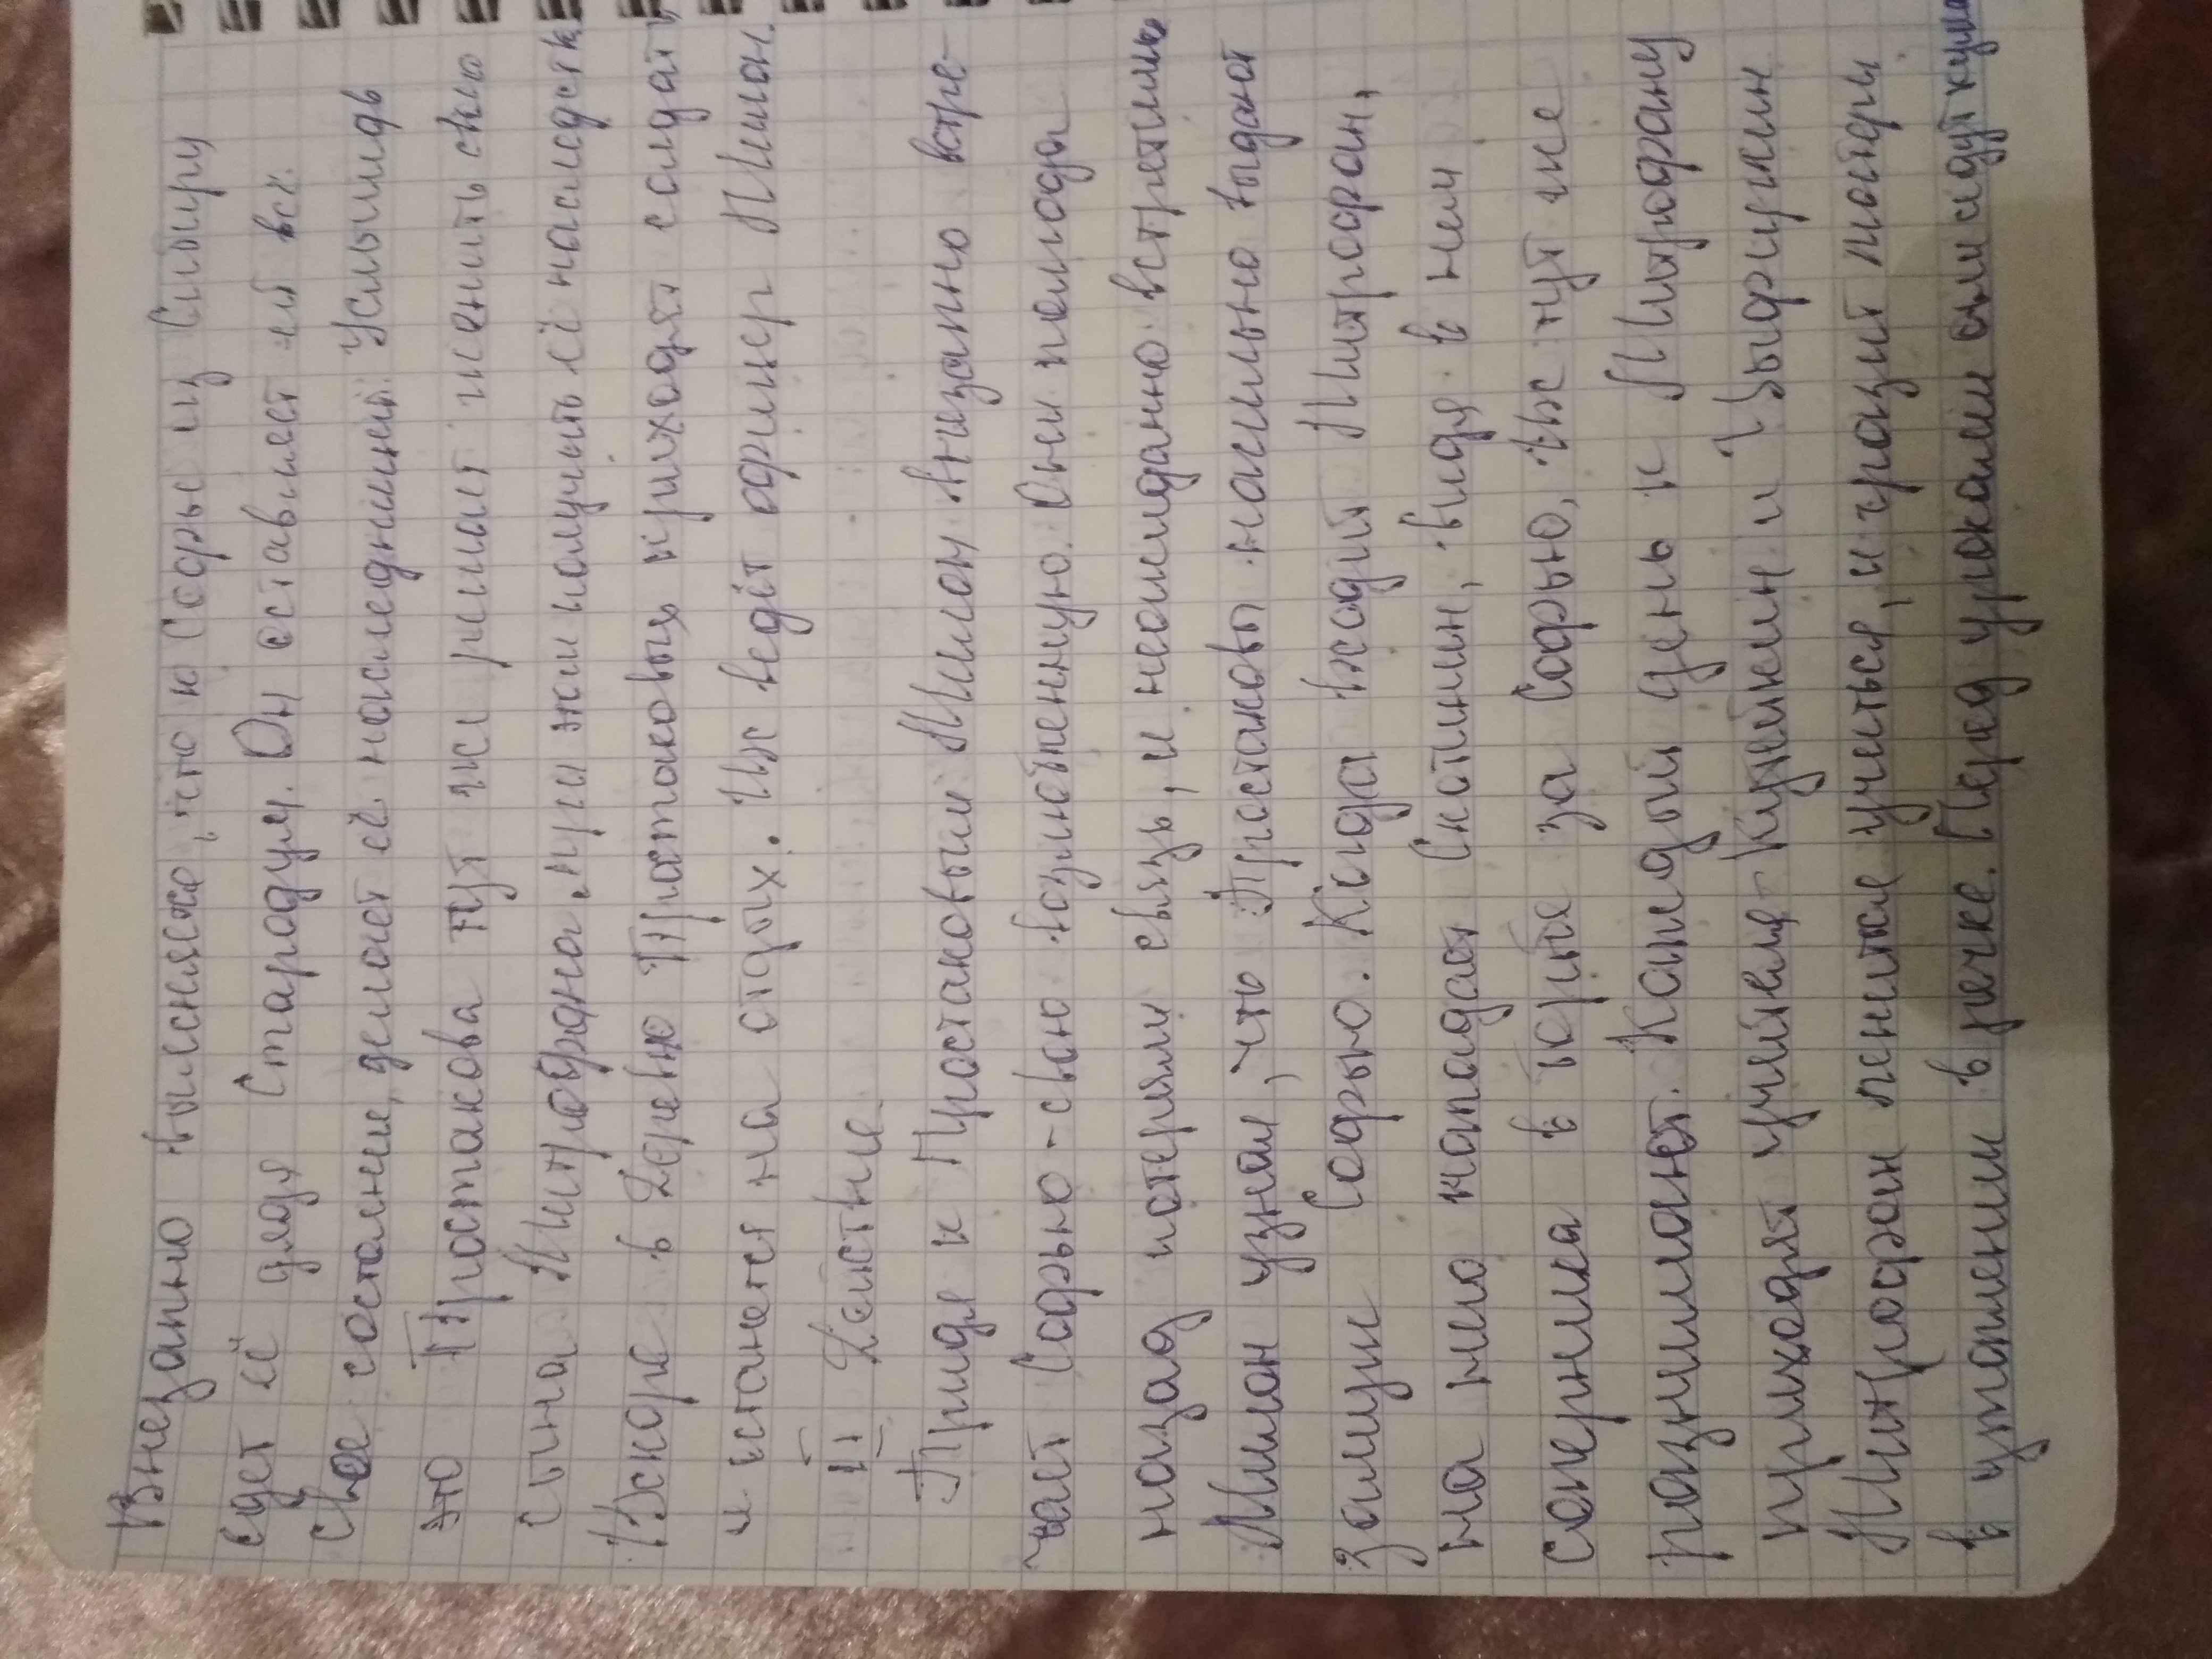 Внезапно выясняясо, что к Софье из Сибири
едет её дядя Стародум. Он оставляет ей все
свое состояние, делает её наследницей. Услышидв
это Простакова тут же решает женить свою
сына Митрофана, при жи получить её наследств
Вскоре в Деревню Простаковых приходят солдаты
и истанется на отдых. Их ведёт офицер Милон.
II Действие
Придя к Простаковым Милон внезапно встре-
чает Софью-свою возлюбленную. Они полгода
назад потеряли связь, и неожиданно встретились
Милон узнал, что Простаковы насильно выдают
замуж Софью. Когда входит Митрофан,
на него нападает Скотинин, видя в нем
соперника в борьбе за Софью, их тут же
разнимают. Каждый день к Митрофану
приходят учителя-Кутейкин и Цыфиркин
Митрофан ленится учиться, и грозит матери
в утоплении в речке. Перед уроками они идут куша